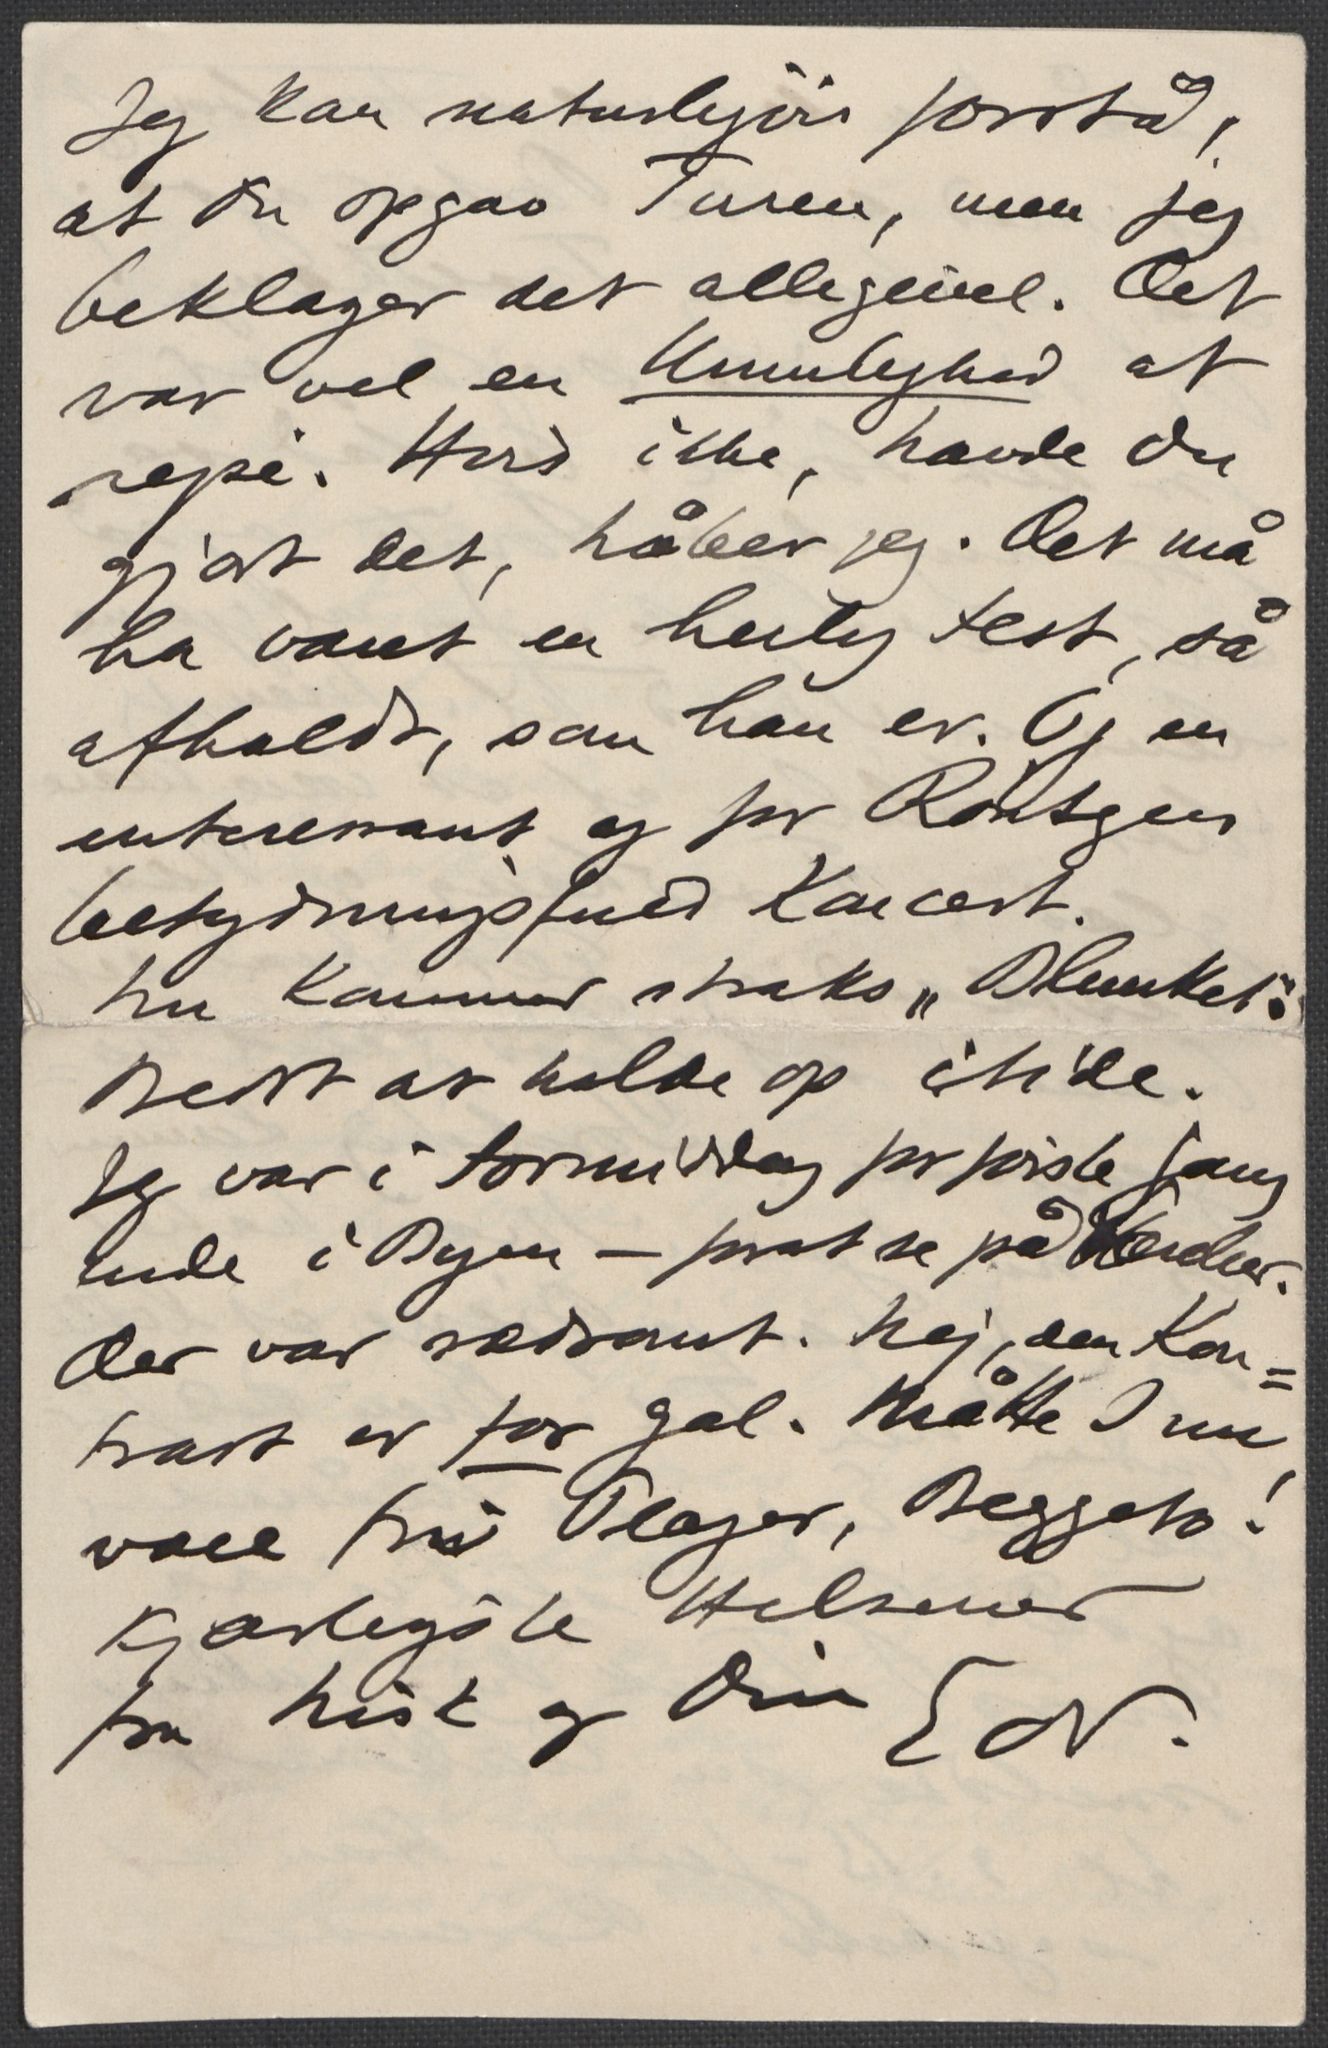 Jeg kan naturligvis forstå,
at Du opgav Turen, men jeg
beklager det alligevel. Det
var vel en Umulighed at
rejse. Hvis ikke, havde Du
gjort det, håber jeg. Det må
ha været en herlig Fest, så
afholdt, som han er. Og en
interessant og for Röntgen
betydningsfuld Koncert.
Nu kommer straks „Blunket“:
Bedst at holde op itide.
Jg var i Formiddag for første Gang
ude i Byen – forat se på
Der var rædsomt. Nej, den Kon=
trast er for gal. Måtte I nu
være fri Plager, Beggeto!
Kjærligste Hilsener
fra Nist og Din Edv.